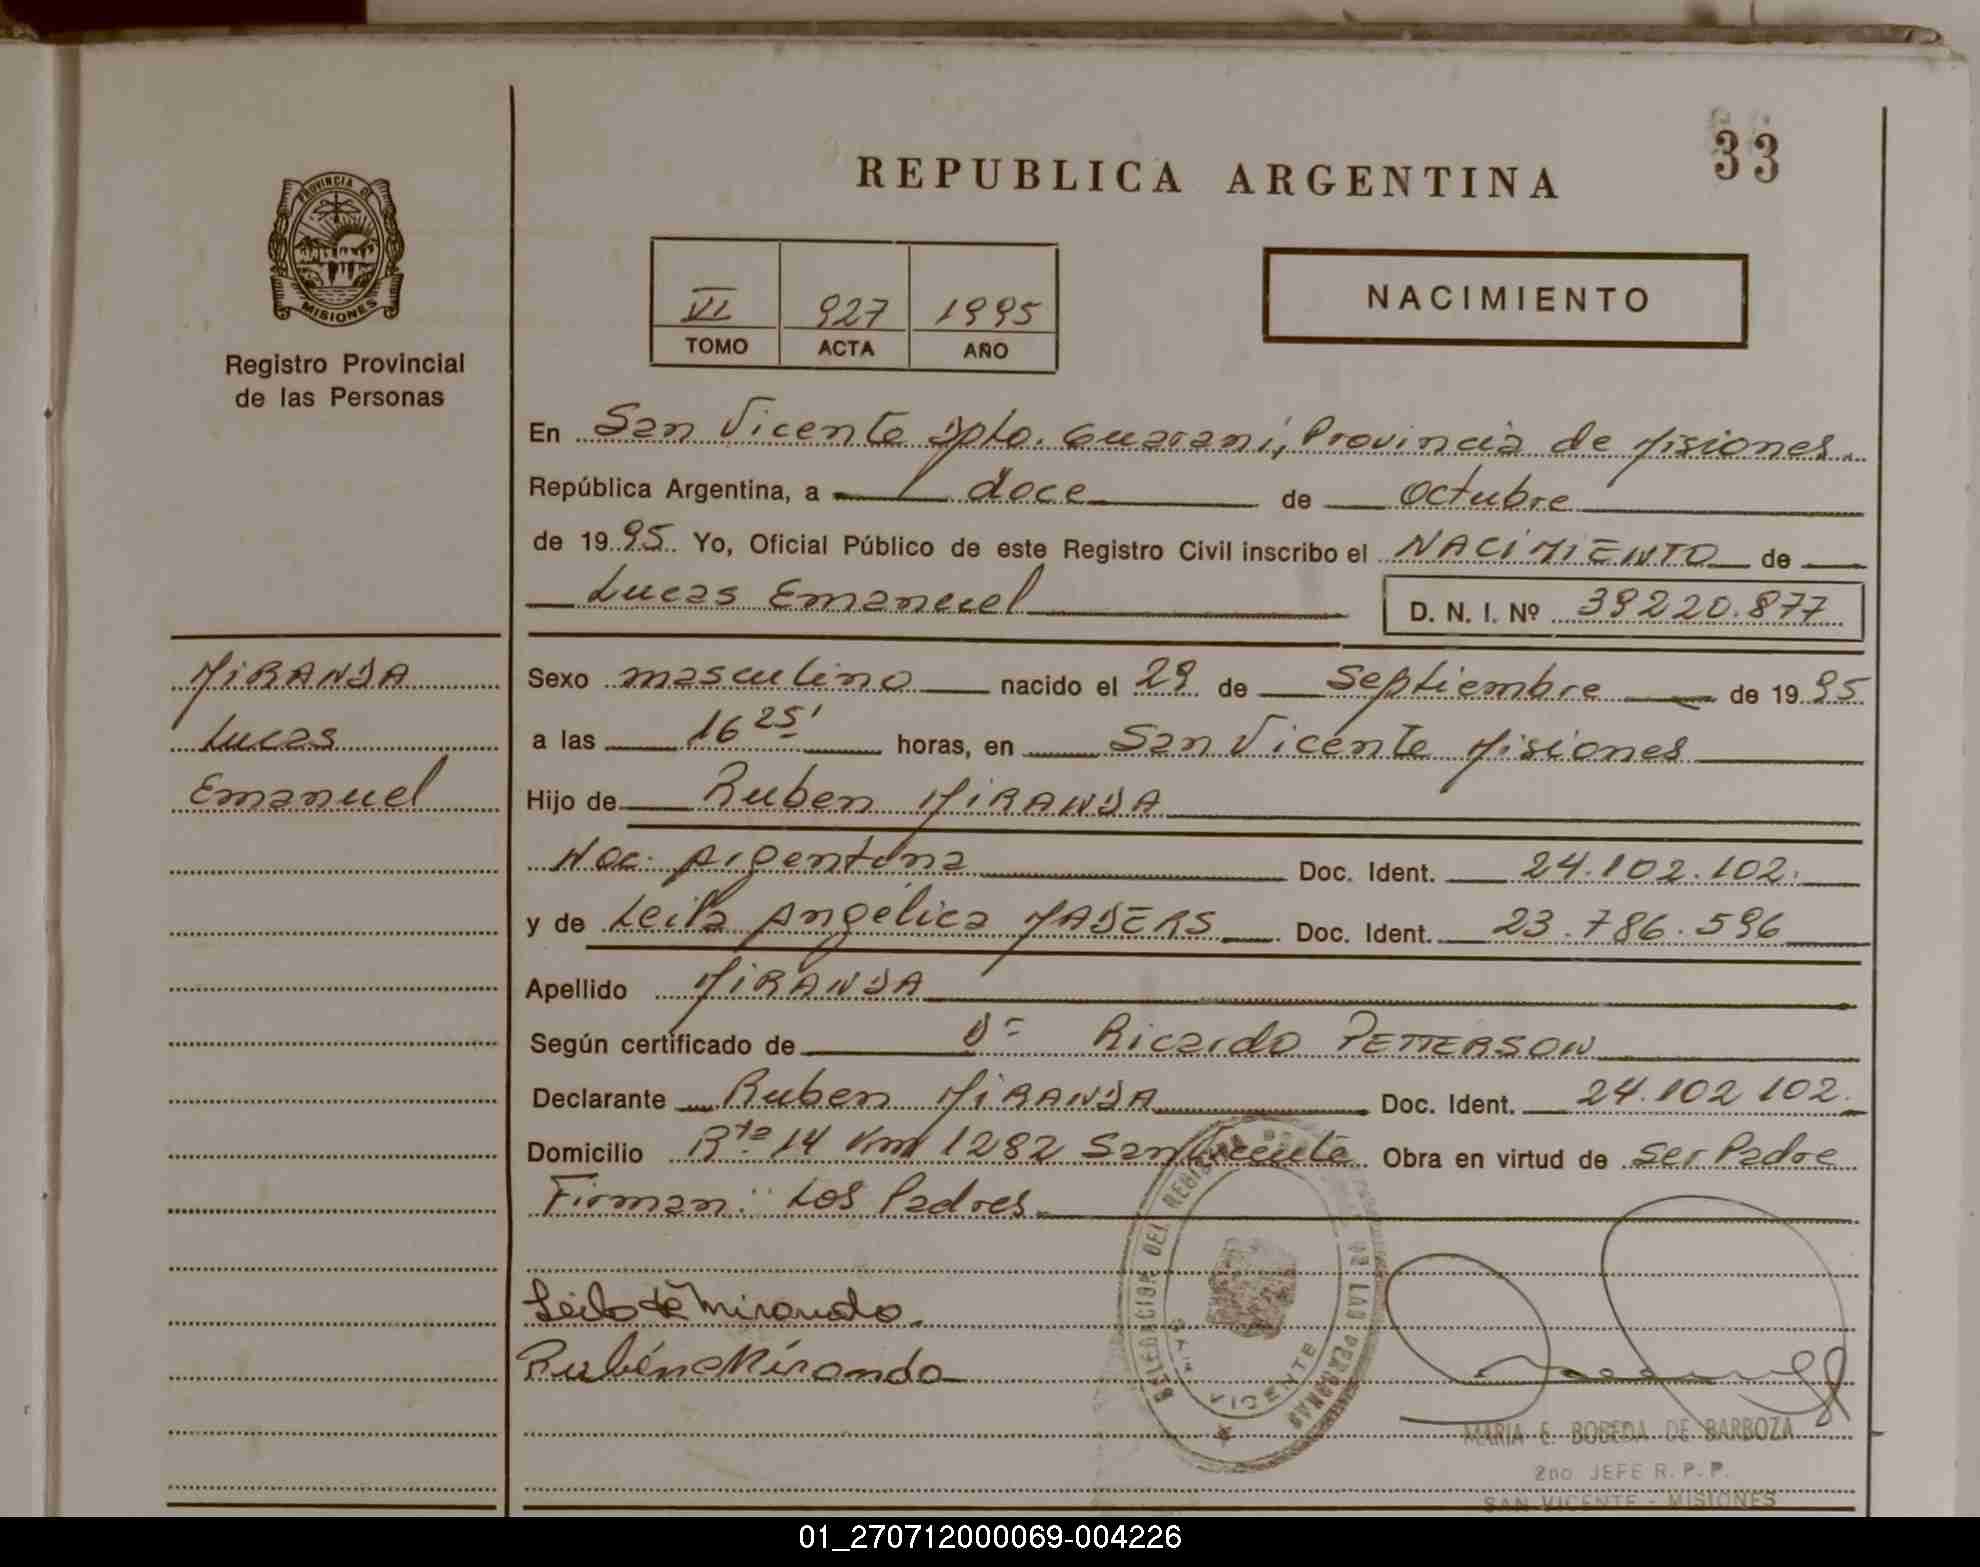 REPUBLICA ARGENTINA
33
PROVINCIA DE
MISIONES
Registro Provincial
de las Personas
VI 927 1995
TOMO ACTA AÑO
NACIMIENTO
En San Vicente Dpto. Guaraní, Provincia de Misiones.
República Argentina, a doce de octubre
de 1995. Yo, Oficial Público de este Registro Civil inscribo el NACIMIENTO de
Lucas Emanuel D. N. I. Nº 39220.877
MIRANDA
Lucas
Emanuel
Sexo masculino nacido el 29 de Septiembre de 1995
a las 16 25' horas, en San Vicente Misiones
Hijo de Ruben MIRANDA
Nac. Argentina Doc. Ident. 24.102.102.
y de Leila Angélica MADERS Doc. Ident. 23.786.596
Apellido MIRANDA
Según certificado de Dr Ricardo PETTERSON
Declarante Ruben MIRANDA Doc. Ident. 24.102 102.
Domicilio Rta. 14 Km 1282 San Vicente Obra en virtud de ser Padre
Firman: Los Padres
Leila de Miranda.
Rubén Miranda
DELEGACION DEL REGISTRO DE LAS PERSONAS
SAN VICENTE
MARIA E. BOBEDA DE BARBOZA
2do JEFE R.P.P.
SAN VICENTE - MISIONES
01_270712000069-004226